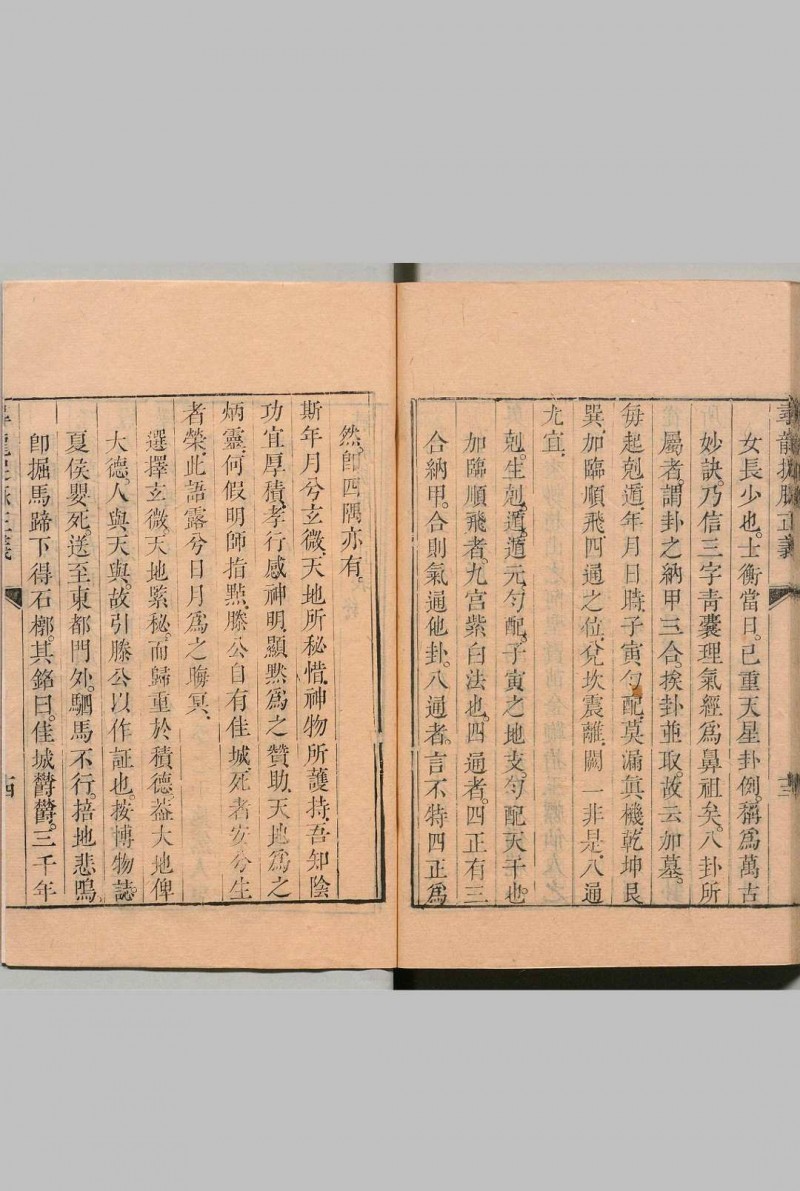 尋龍捉脉正義
十三
女長少也。士衡當日。已重天星卦例。稱爲萬古
妙訣。乃信三字青囊理氣經爲鼻祖矣。八卦所
屬者。謂卦之納甲三合。挨卦並取。故云加墓。
每起剋遁。年月日時。子寅勻配。莫漏眞機。乾坤艮
巽。加臨順飛。四通之位。兌坎震離。闕一非是。八通
尤宜。
剋。生剋。遁。遁元。勻配。子寅之地支。勻配天干也。
加臨順飛者。九宮紫白法也。四通者。四正有三
合納甲。合則氣通他卦。八通者。言不特四正爲
然。卽四隅亦有。
斯年月兮玄微。天地所秘惜。神物所護持。吾知陰
功宜厚積。孝行感神明。顯默爲之贊助。天地爲之
炳靈。何假明師指點。滕公自有佳城。死者安兮生
者榮。此語露兮日月爲之晦冥。
選擇玄微。天地緊秘。而歸重於積德。葢大地俾
大德。人與天與。故引滕公以作証也。按博物誌。
夏侯嬰死。送至東都門外。駟馬不行。掊地悲鳴。
卽掘馬蹄下得石槨。其銘曰。佳城鬱鬱。三千年
尋龍捉脉正義
十四